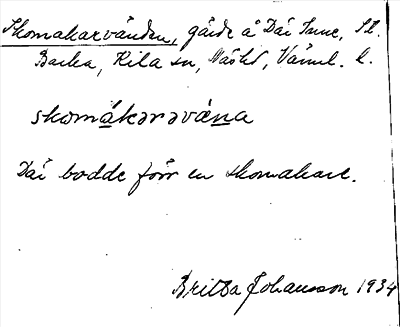 Skomakarvänden, gårde å Där Inne, St.
Backa, Kila sn, Näshd, Värml. l.
skomákarəvä́na
Där bodde förr en skomakare.
Britta Johansson 1934